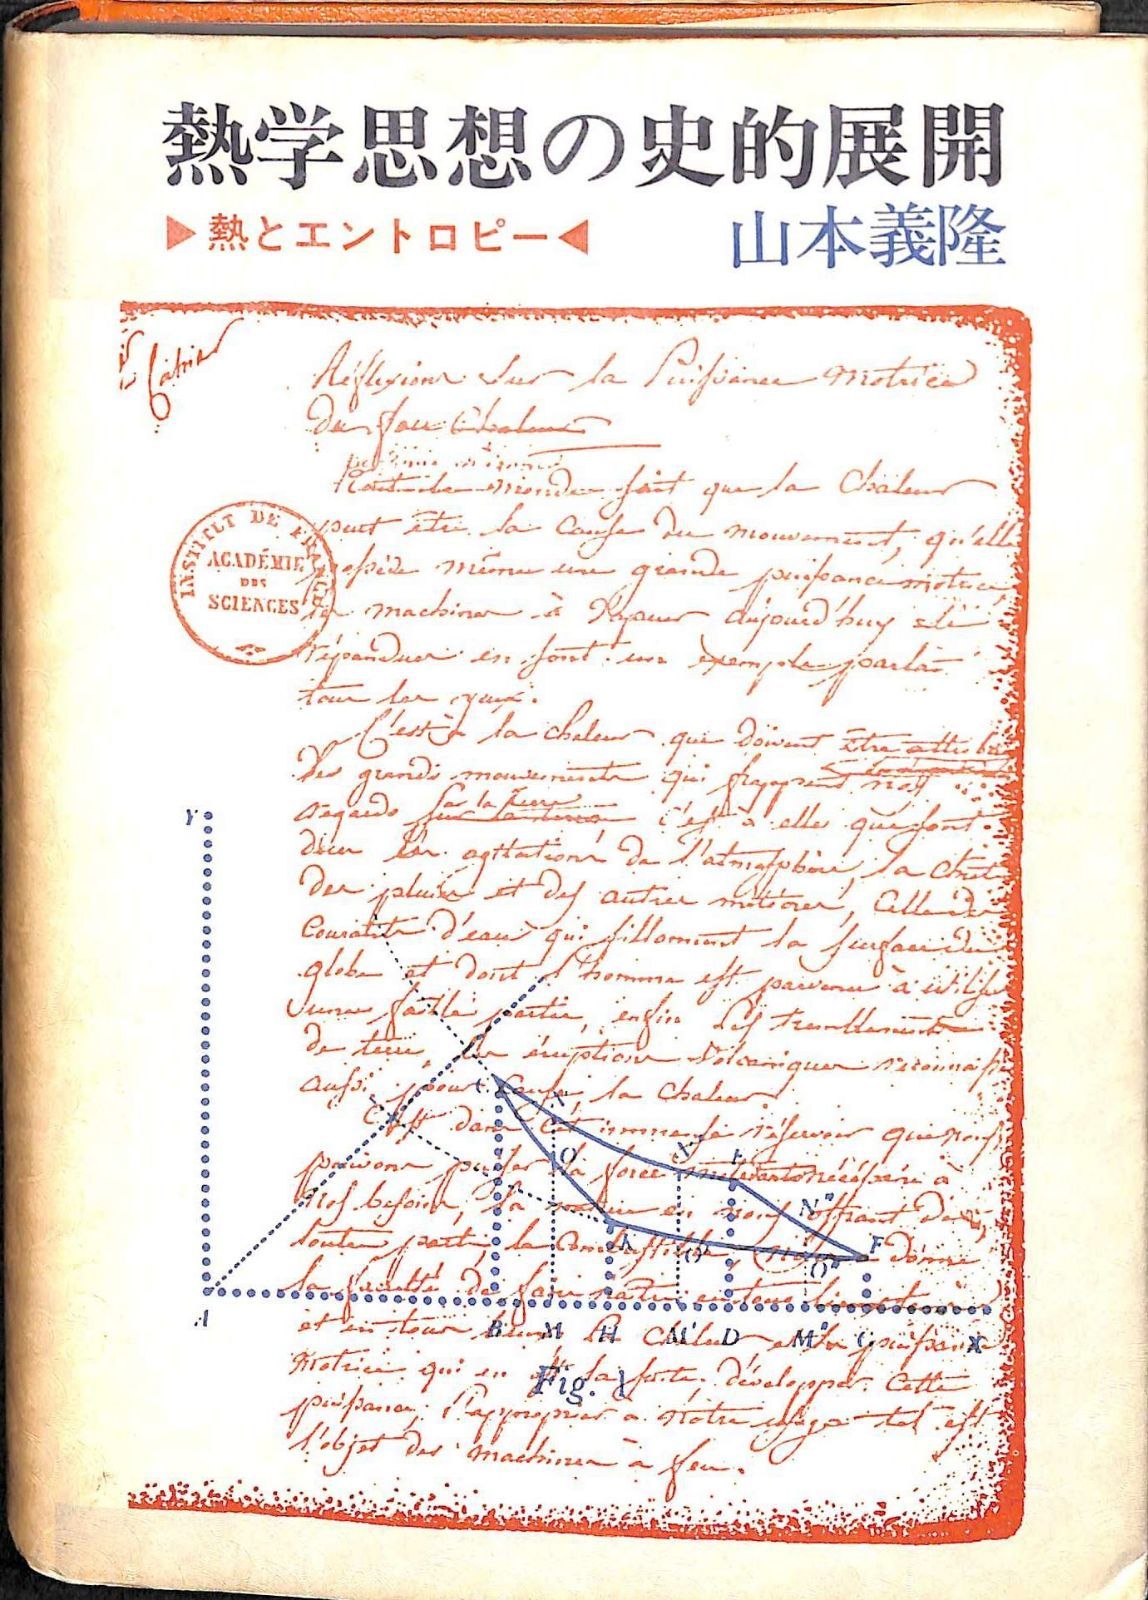 熱学思想の史的展開
▶熱とエントロピー◀
山本義隆
Réflexions sur la Puissance Motrice
du feu Chaleur
Tout le monde sait que la Chaleur
peut être la cause du mouvement, qu'elle
possède même une grande puissance motrice
machines à Vapeur aujourd'huy si
répandues en sont un exemple parlant
tous les yeux.
INSTITUT DE FRANCE
ACADÉMIE
DES
SCIENCES
C'est à la chaleur que doivent être
Des grands mouvements qui frappent nos
regards sur la Terre c'est à elle que sont
dues les agitations de l'atmosphère, la chute
des pluies et des autres météores, Celle de
Courants d'eau qui sillonnent la surface du
globe et dont l'homme est parvenu à utiliser
une faible partie, enfin Les tremblements
de terre, les éruptions Volcaniques reconnaiss
aussi pour Cause la chaleur.
C'est dans cet immense réservoir que nous
pouvons puiser la force nécessaire à
Nos besoins, la nature en nous offrant de
toutes parts, le Combustible, nous a donné
la faculté de faire naître en tous
et en tous lieux la Chaleur et la puissance
Motrice qui en est la suite. développer Cette
puissance, l'approprier à notre usage tel est
l'objet des machines à feu.
Y
E
N"
F
O
K
O'
O"
A
B M H M' D M" G X
Fig. 1